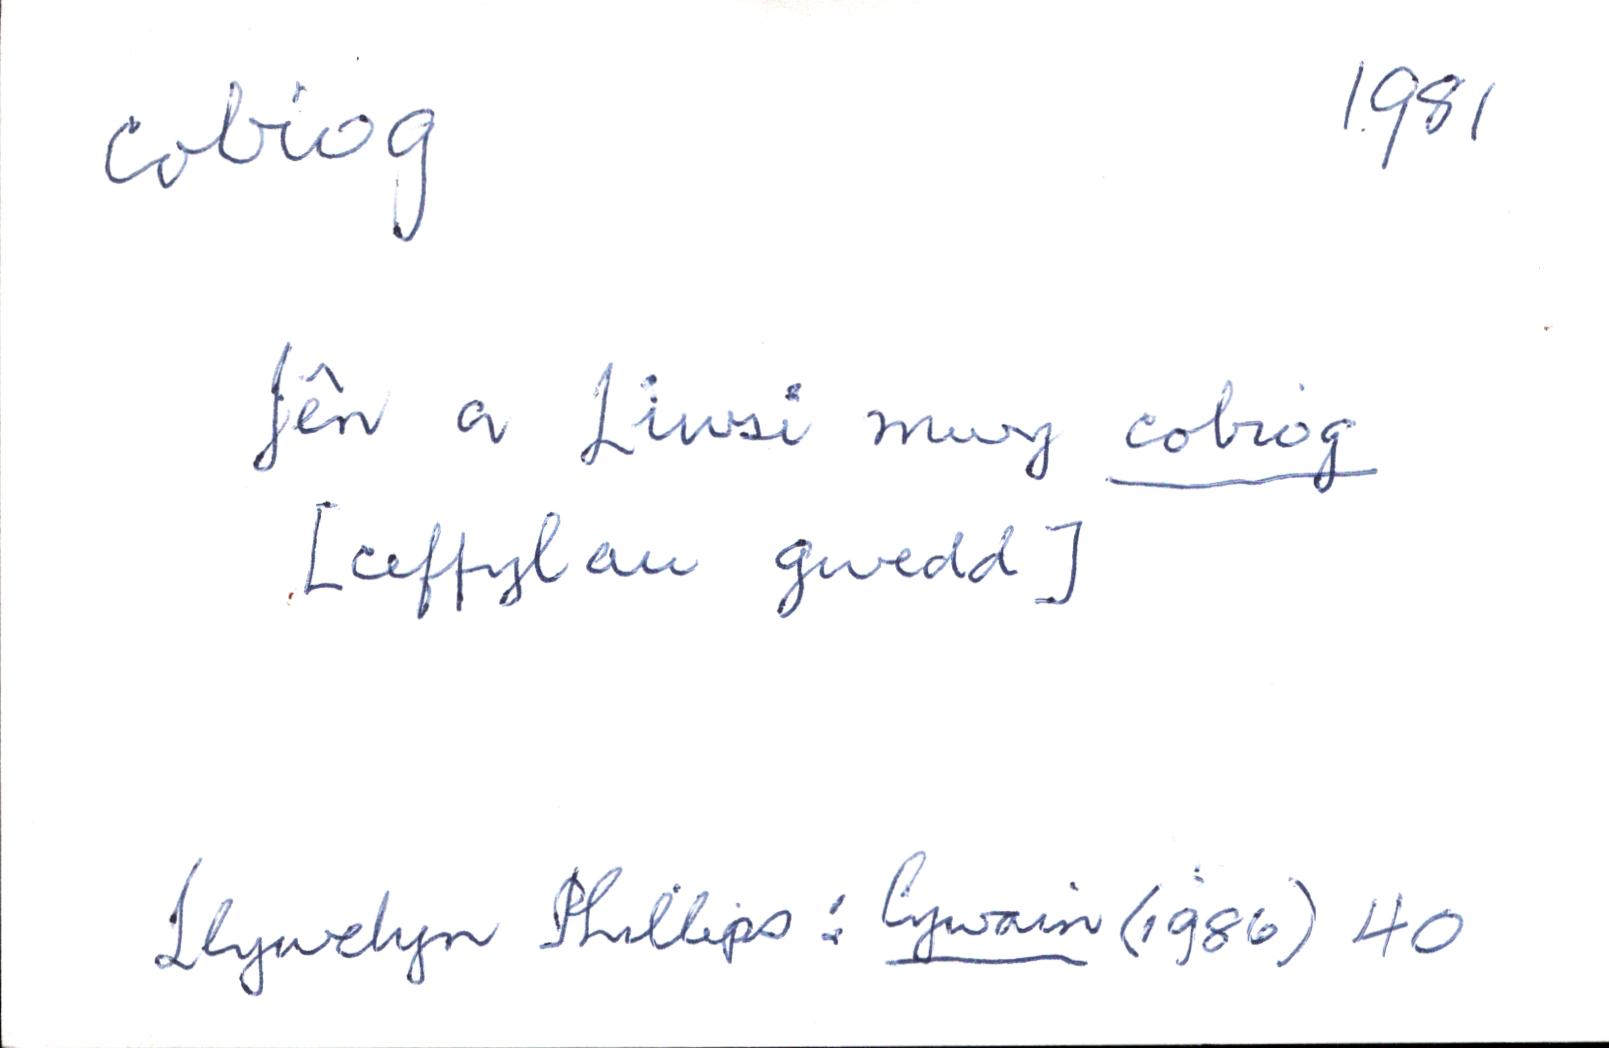 cobiog 1981
Jên a Liwsi mwy cobiog
[ceffylau gwedd]
Llywelyn Phillips : Cywain (1986) 40